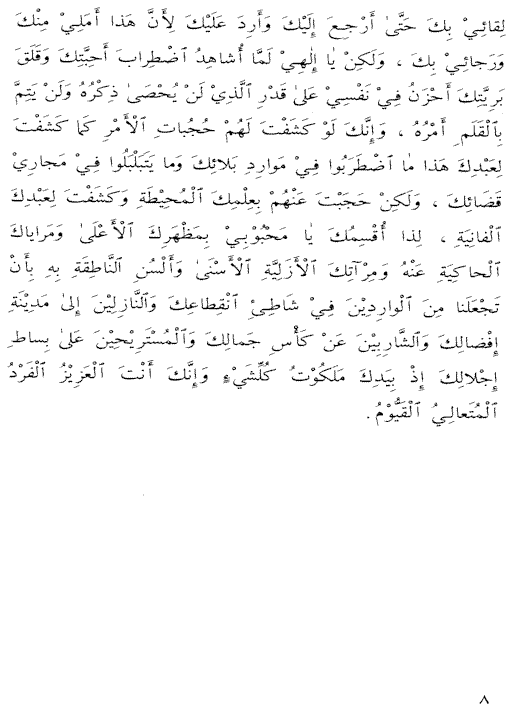 لِقائِيْ بِكَ حَتَّىٰ أَرْجِعَ إِلَيْكَ وَأَرِدَ عَلَيْكَ لِأَنَّ هَذا أَمَلِيْ مِنْكَ
وَرَجائِيْ بِكَ ، وَلَكِنْ يا إِلٰهِيْ لَمَّا أُشاهِدُ ٱضْطِرابَ أَحِبَّتِكَ وَقَلَقَ
بَرِيَّتِكَ أَحْزَنُ فِيْ نَفْسِيْ عَلىٰ قَدْرِ ٱلَّذِيْ لَنْ يُحْصَىٰ ذِكْرُهُ وَلَنْ يَتِمَّ
بِٱلْقَلَمِ أَمْرُهُ ، وَإِنَّكَ لَوْ كَشَفْتَ لَهُمْ حُجُباتِ ٱلْأَمْرِ كَما كَشَفْتَ
لِعَبْدِكَ هَذا ما ٱضْطَرَبُوا فِيْ مَوارِدِ بَلائِكَ وَما يَتَبَلْبَلُوا فِيْ مَجارِيْ
قَضائِكَ ، وَلَكِنْ حَجَبْتَ عَنْهُمْ بِعِلْمِكَ ٱلْمُحِيْطَةِ وَكَشَفْتَ لِعَبْدِكَ
ٱلْفانِيَةِ ، لِذا أُقْسِمُكَ يا مَحْبُوْبِيْ بِمَظْهَرِكَ ٱلْأَعْلَىٰ وَمَراياكَ
ٱلْحاكِيَةِ عَنْهُ وَمِرْآتِكَ ٱلْأَزَلِيَّةِ ٱلْأَسْنَىٰ وَأَلْسُنِ ٱلنَّاطِقَةِ بِهِ بِأَنْ
تَجْعَلَنا مِنَ ٱلْوارِدِيْنَ فِيْ شاطِئِ ٱنْقِطاعِكَ وَٱلنَّازِلِيْنَ إِلىٰ مَدِيْنَةِ
إِفْضالِكَ وَٱلشَّارِبِيْنَ عَنْ كَأْسِ جَمالِكَ وَٱلْمُسْتَرِيْحِيْنَ عَلىٰ بِساطِ
إِجْلالِكَ إِذْ بِيَدِكَ مَلَكُوْتُ كُلِّشَيْءٍ وَإِنَّكَ أَنْتَ ٱلْعَزِيْزُ ٱلْفَرْدُ
ٱلْمُتَعالِيُ ٱلْقَيُّوْمُ.
٨